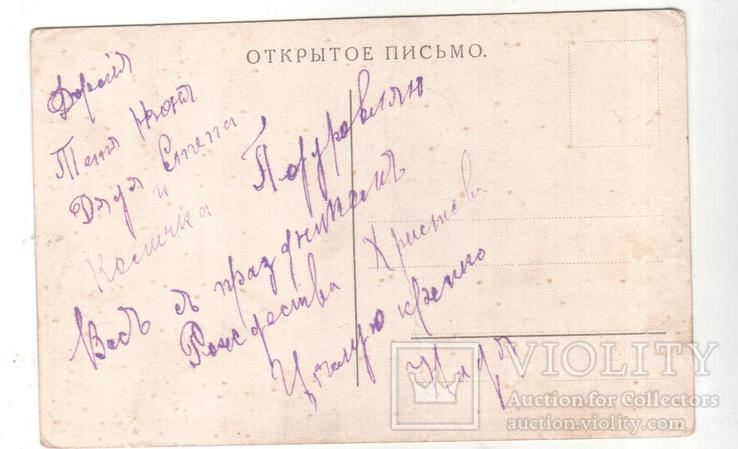 ОТКРЫТОЕ ПИСЬМО.
Дорогія
Тетя Нюня
Дядя Степа
и
Количка Поздравляю
Васъ съ праздникомъ
Рождества Христова
Цѣлую крѣпко
Надя
VIOLITY
Auction for Collectors
auction.violity.com